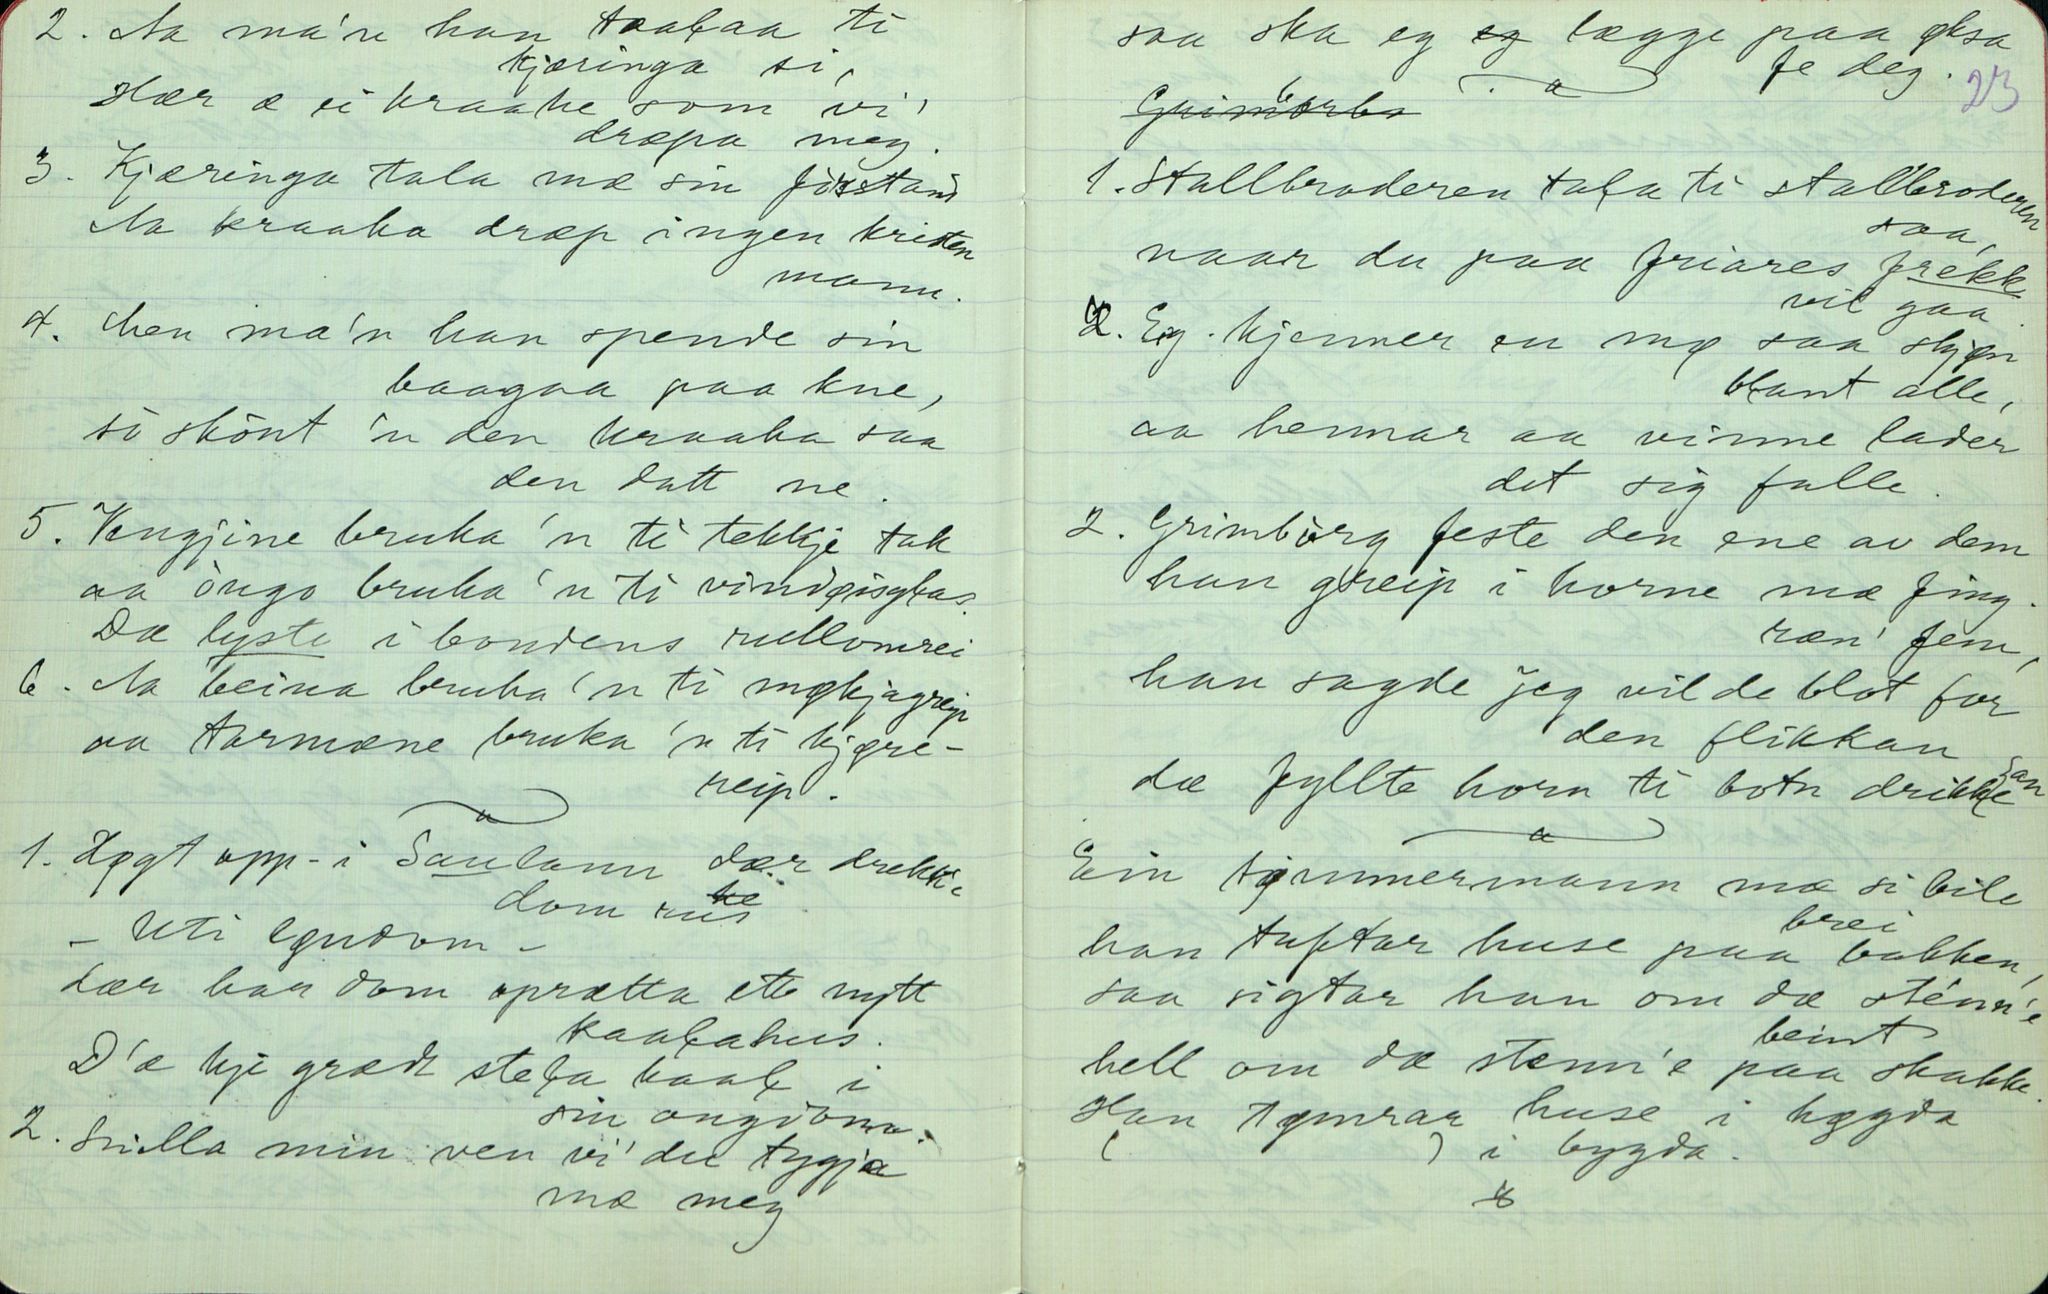 2. Aa ma'n han taaɫaa ti
kjæringa si,
Hær æ ei kraake som vi'
dræpa meg.
3. Kjæringa tala mæ sin förstånd
Aa kraaka dræp ingen kristen
mann.
4. Men ma'n han spende sin
baagaa paa kne,
så skönt 'n den kraaka saa
den datt ne.
5. Vengjine bruka 'n ti tekkje tak
aa öngo bruka 'n ti
Dæ lyste i bondens rullomrei
6. Aa beina bruka 'n ti møkjagreip
aa tarmæne bruka 'n ti kjøre-
reip.
1. Høgt opp-i Saulann dær drekk
dom
- Uti løndom -
dær har dom oprætta ett nytt
kaaɫahus.
D'æ kje grædt steɫa kaaɫ i
sin ongdom.
2. Snilla min ven vi' du tygja
mæ meg
saa ska eg lægge paa øksa
fe deg. 23
Grimborba
1. Stallbroderen taɫa ti stallbroderen
saa,
naar du paa friares frekk
vil gaa.
2. Eg kjenner en mø saa skjøn
blant alle,
aa hennar aa vinne lader
det sig falle.
2. Grimborg feste den ene av dem
han greip i horne mæ fing-
ræn' fem,
han sagde jeg vil de blot for
den flikkan
dæ fyllte horn ti botn drikke
san
Ein tømmermann mæ si bile
brei
han tuftar huse paa bakken,
saa sigtar han om dæ sténn'e
beint
hell om dæ stenn'e paa skakke.
Han tømrar huse i høgda
( ) i bygda.